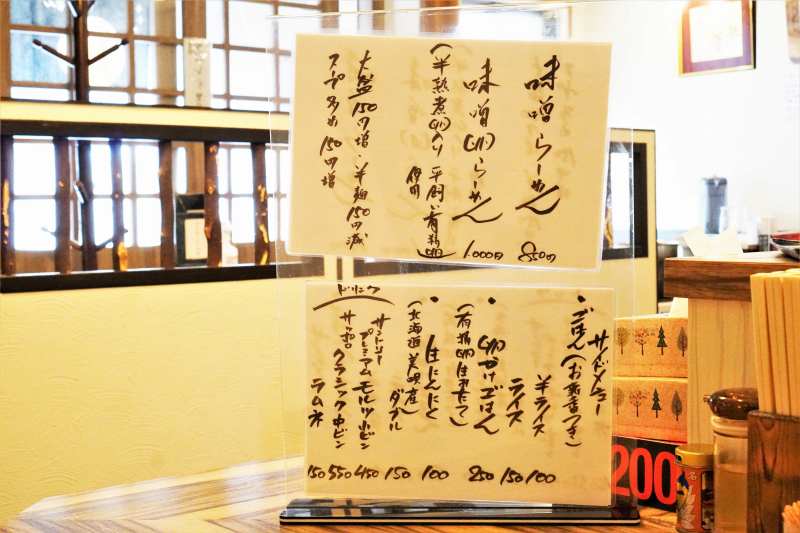 味噌らーめん 850円
味噌卵らーめん 1,000円
(半熟煮卵入り 平岡の有精卵使用)
大盛150円増・半麺150円減
スープ多め 150円増
サイドメニュー
・ごはん(お新香つき)
半ライス 100
ライス 150
・卵かけごはん 250
(有精卵生みたて)
・生にんにく 100
ダブル 150
(北海道美唄産)
ドリンク
サントリープレミアムモルツ小ビン 450
サッポロクラシック中ビン 550
ラムネ 150
200